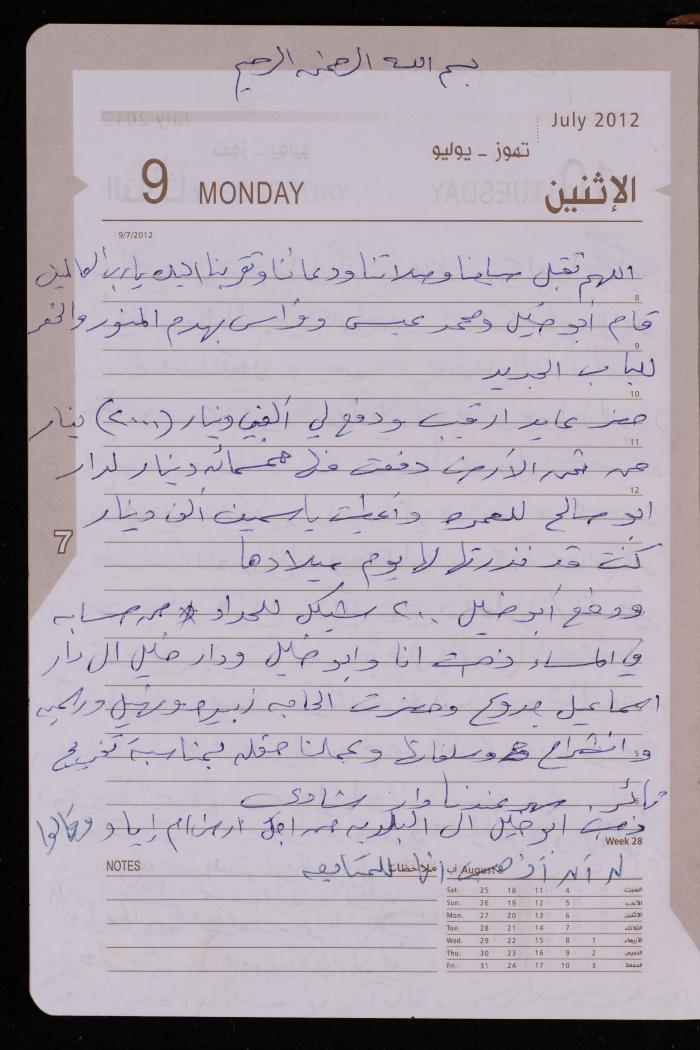 بسم الله الرحمن الرحيم
July 2012
تموز - يوليو
9 MONDAY الإثنين
9/7/2012
اللهم تقبل صيامنا وصلاتنا ودعائنا وتقربنا اليك يا رب العالمين
8
قام أبو خليل ومحمد عيسى وفراس بهدم المنور والحفر
9
للباب الجديد
10
حضر عايد ارقيب ودفع لي ألفي دينار (٢٠٠٠) دينار
11
من ثمن الأرض دفعت منها خمسمائة دينار لدار
12
ابو صالح للعمره وأعطيت ياسمين ألف دينار
كنت قد نذرتها لها يوم ميلادها
7
ودفع أبو خليل ٢٠٠ شيكل للحداد من حسابه
في المساء ذهبت انا وابو خليل ودار خليل الى دار
اسماعيل وحضرت الحاجه زبيده
5
وانشراح وسلفاتها وعملنا حفله بمناسبة تخريج
6
سهر عندنا وار شادي
ذهب ابو خليل الى البلدية من اجل ارض ام إياد وقالوا
Week 28
له أذهب أنا للمتابعه
NOTES ملاحظات
آب August 8
Sat. 25 18 11 4 السبت
Sun. 26 19 12 5 الأحد
Mon. 27 20 13 6 الإثنين
Tue. 28 21 14 7 الثلاثاء
Wed. 29 22 15 8 1 الأربعاء
Thu. 30 23 16 9 2 الخميس
Fri. 31 24 17 10 3 الجمعة